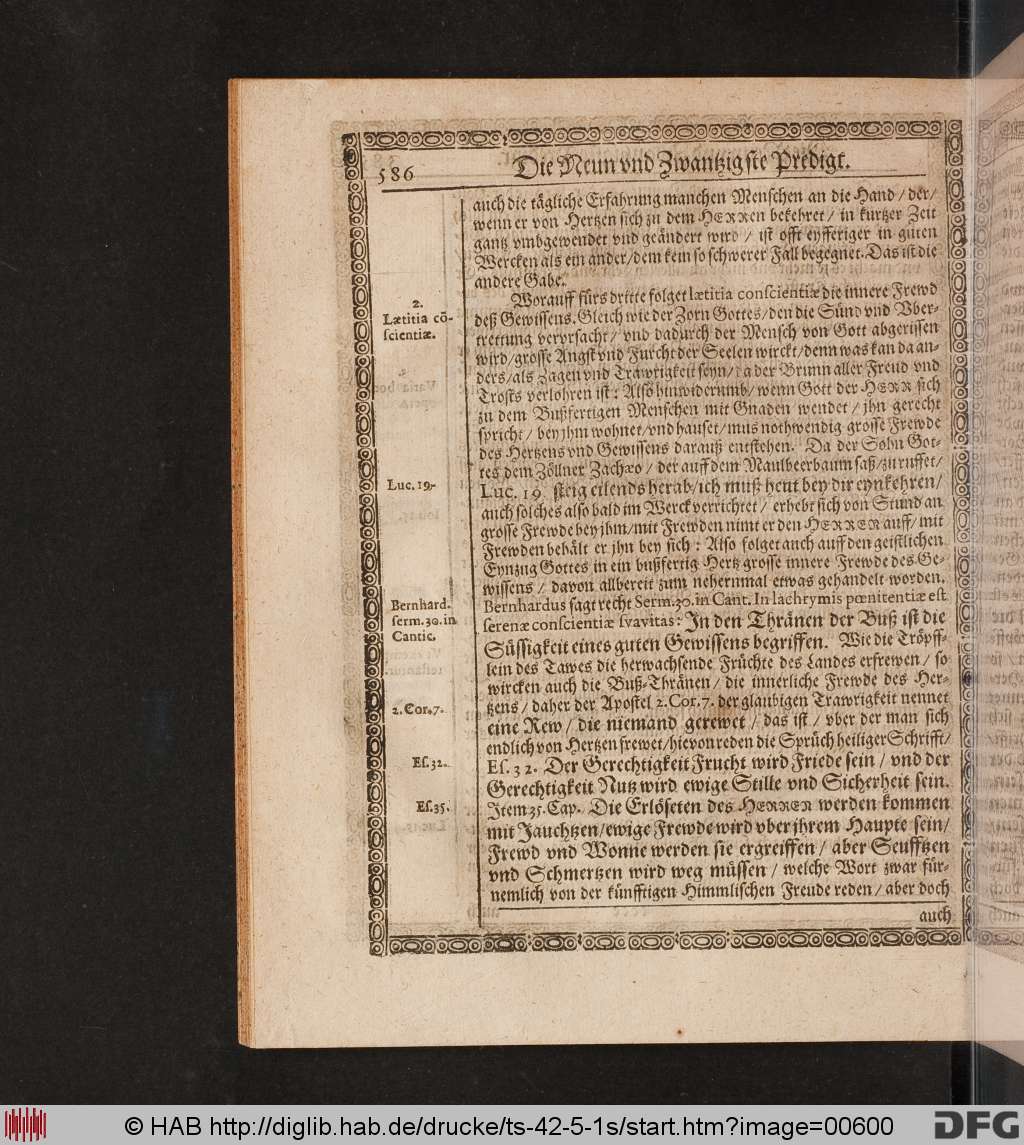 586
Die Neun vnd Zwantzigste Predigt.
auch die tägliche Erfahrung manchen Menschen an die Hand / der /
wenn er von Hertzen sich zu dem HERREN bekehret / in kurtzer Zeit
gantz vmbgewendet vnd geändert wird / ist offt eyfferiger in guten
Wercken als ein ander / dem kein so schwerer Fall begegnet. Das ist die
andere Gabe.
2.
Lætitia cõ-
scientiæ.
Worauff fürs dritte folget lætitia conscientiæ die innere Frewd
deß Gewissens. Gleich wie der Zorn Gottes / den die Sünd vnd Vber-
trettung vervrsacht / vnd dadurch der Mensch von Gott abgerissen
wird / grosse Angst vnd Furcht der Seelen wirckt / denn was kan da an-
ders / als Zagen vnd Trawrigkeit seyn / da der Brunn aller Freud vnd
Trosts verlohren ist : Also hinwiderumb / wenn Gott der HERR sich
zu dem Bußfertigen Menschen mit Gnaden wendet / jhn gerecht
spricht / bey jhm wohnet / vnd hauset / mus nothwendig grosse Frewde
des Hertzens vnd Gewissens darauß entstehen. Da der Sohn Got-
tes dem Zöllner Zachæo / der auff dem Maulbeerbaum saß / zu ruffet /
Luc. 19.
Luc. 19. steig eilends herab / ich muß heut bey dir eynkehren /
auch solches also bald im Werck verrichtet / erhebt sich von Stund an
grosse Frewde bey jhm / mit Frewden nimt er den HERREN auff / mit
Frewden behält er jhn bey sich : Also folget auch auff den geistlichen
Eynzug Gottes in ein bußfertig Hertz grosse innere Frewde des Ge-
wissens / davon allbereit zum nehernmal etwas gehandelt worden.
Bernhard.
serm. 30. in
Cantic.
Bernhardus sagt recht Serm. 30. in Cant. In lachrymis pœnitentiæ est
serenæ conscientiæ svavitas: In den Thränen der Buß ist die
Süssigkeit eines guten Gewissens begriffen. Wie die Tröpff-
lein des Tawes die herwachsende Früchte des Landes erfrewen / so
wircken auch die Buß-Thränen / die innerliche Frewde des Her-
2. Cor. 7.
tzens / daher der Apostel 2. Cor. 7. der glaubigen Trawrigkeit nennet
eine Rew / die niemand gerewet / das ist / vber der man sich
endlich von Hertzen frewet / hievon reden die Sprüch heiliger Schrifft /
Es. 32.
Es. 32. Der Gerechtigkeit Frucht wird Friede sein / vnd der
Gerechtigkeit Nutz wird ewige Stille vnd Sicherheit sein.
Es. 35.
Item 35. Cap. Die Erlöseten des HERREN werden kommen
mit Jauchtzen / ewige Frewde wird vber jhrem Haupte sein /
Frewd vnd Wonne werden sie ergreiffen / aber Seufftzen
vnd Schmertzen wird weg müssen / welche Wort zwar für-
nemlich von der künfftigen Himmlischen Freude reden / aber doch
auch
© HAB http://diglib.hab.de/drucke/ts-42-5-1s/start.htm?image=00600
DFG